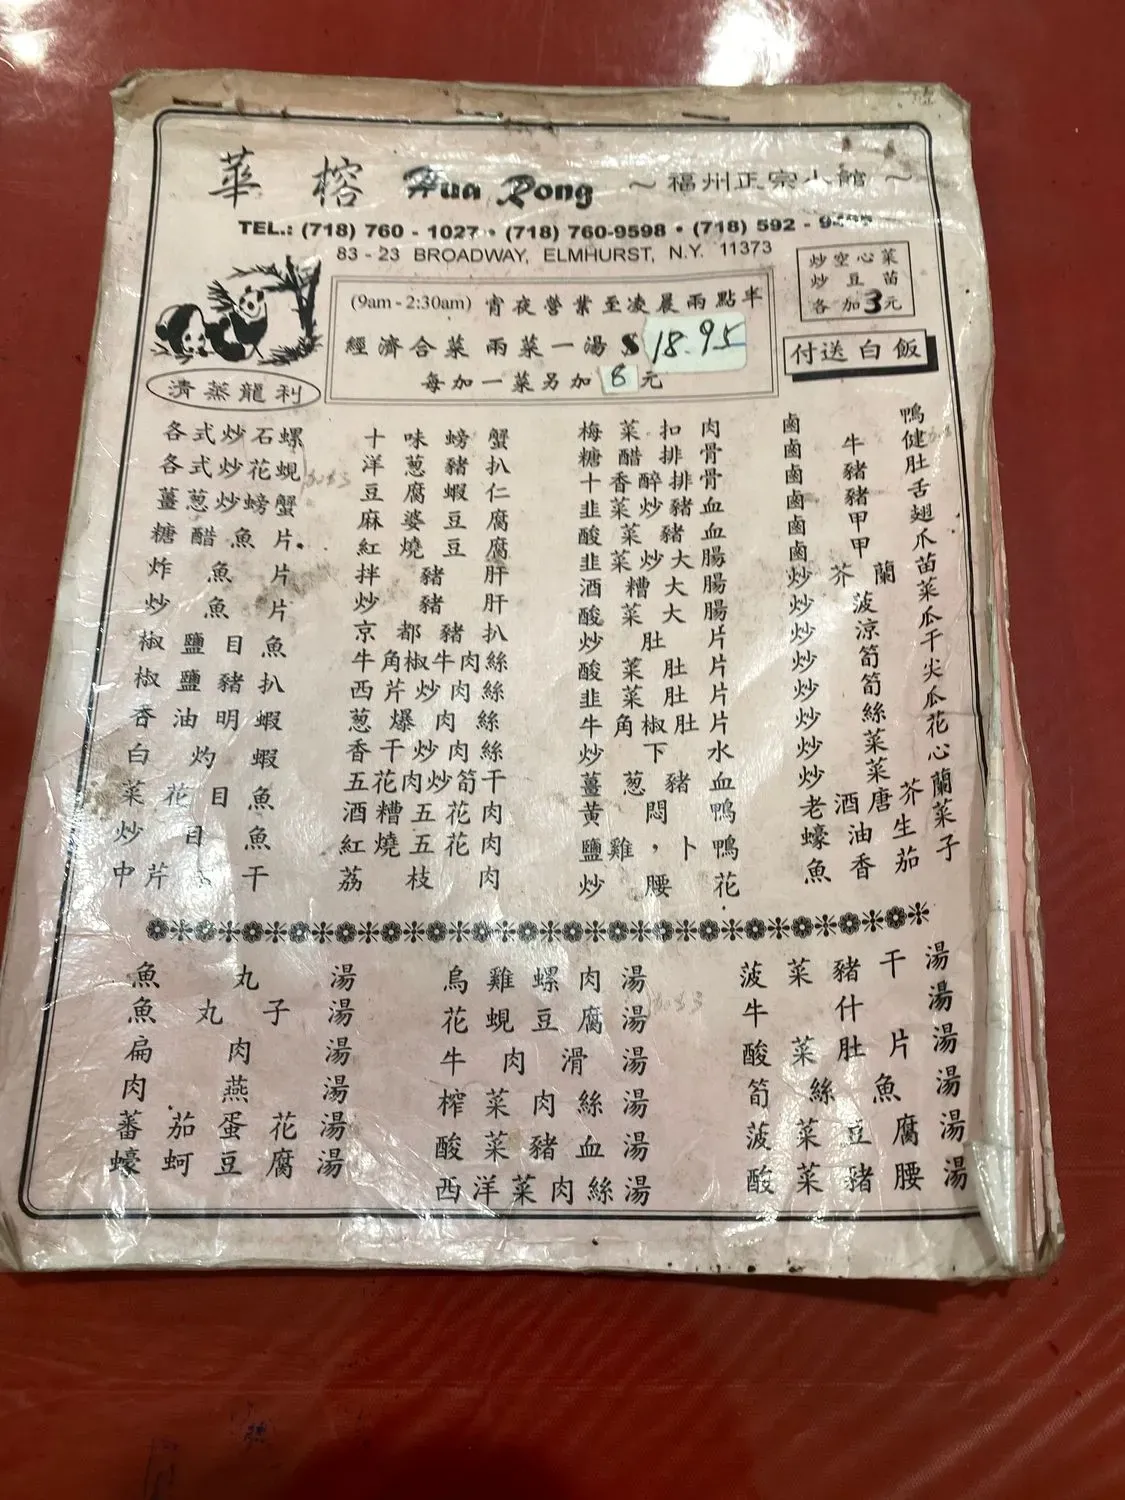 華榕 Hua Rong ～福州正宗小館～
TEL.: (718) 760 - 1027 • (718) 760-9598 • (718) 592 - 9
83 - 23 BROADWAY, ELMHURST, N.Y. 11373
炒空心菜
炒豆苗
各加3元
(9am - 2:30am) 宵夜營業至凌晨兩點半
經濟合菜 兩菜一湯 $ 18.95
每加一菜另加 8 元
付送白飯
清蒸龍利
各式炒石螺
各式炒花蜆
薑葱炒螃蟹
糖醋魚片
炸魚片
炒魚片
椒鹽目魚
椒鹽豬扒
香油明蝦
白灼蝦
菜花目魚
炒目魚
中芹干
十味螃蟹
洋葱豬扒
豆腐蝦仁
麻婆豆腐
紅燒豆腐
拌豬肝
炒豬肝
京都豬扒
牛角椒牛肉絲
西芹炒肉絲
葱爆肉絲
香干炒肉絲
五花肉炒筍干
酒糟五花肉
紅燒五花肉
荔枝肉
梅菜扣肉
糖醋排骨
十香醉排骨
韭菜炒豬血
酸菜豬血
韭菜炒大腸
酒糟大腸
酸菜大腸
炒肚片
酸菜肚片
韭菜肚片
牛角椒肚片
炒下水
薑葱豬血
黃悶鴨
鹽雞，卜鴨
炒腰花
鹵鴨
鹵牛健
鹵豬肚
鹵豬舌
鹵甲翅
鹵甲爪
炒芥蘭苗
炒菠菜
炒涼瓜
炒筍干
炒筍尖
炒絲瓜
炒菜花
炒菜心
老酒唐芥蘭
蠔油生菜
魚香茄子
魚丸湯
魚丸子湯
扁肉湯
肉燕湯
蕃茄蛋花湯
蠔蚵豆腐湯
烏雞螺肉湯
花蜆豆腐湯
牛肉滑湯
榨菜肉絲湯
酸菜豬血湯
西洋菜肉絲湯
菠菜豬干湯
牛什湯
酸菜肚片湯
筍絲魚湯
菠菜豆腐湯
酸菜豬腰湯